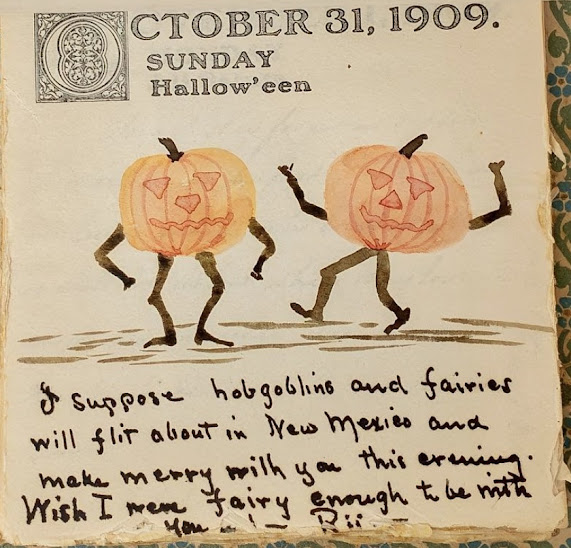 OCTOBER 31, 1909.
SUNDAY
Hallow'een
I suppose hobgoblins and fairies
will flit about in New Mexico and
make merry with you this evening.
Wish I were fairy enough to be with
you